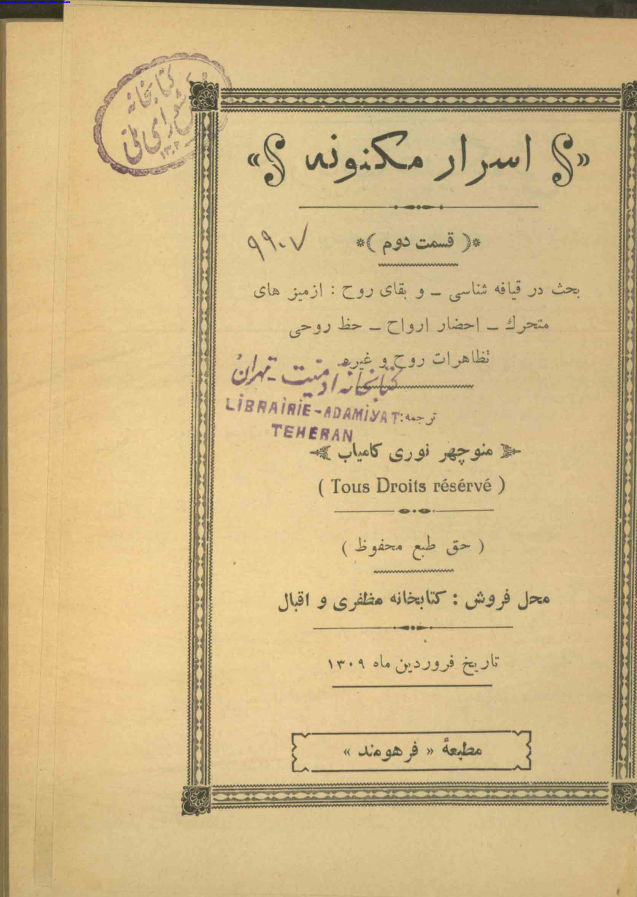 کتابخانه
شورای ملی
« اسرار مکنونه »
۹۹۰۷
*( قسمت دوم )*
بحث در قیافه شناسی ـ و بقای روح : ازمیز های
متحرك ـ احضار ارواح ـ حظ روحی
تظاهرات روح و غیره
کتابخانه آدمیت - تهران
LIBRAIRIE-ADAMIYAT
TEHERAN
ترجمه:
منوچهر نوری کامیاب
( Tous Droits résérvé )
( حق طبع محفوظ )
محل فروش : کتابخانه مظفری و اقبال
تاریخ فروردین ماه ۱۳۰۹
مطبعهٔ « فرهومند »